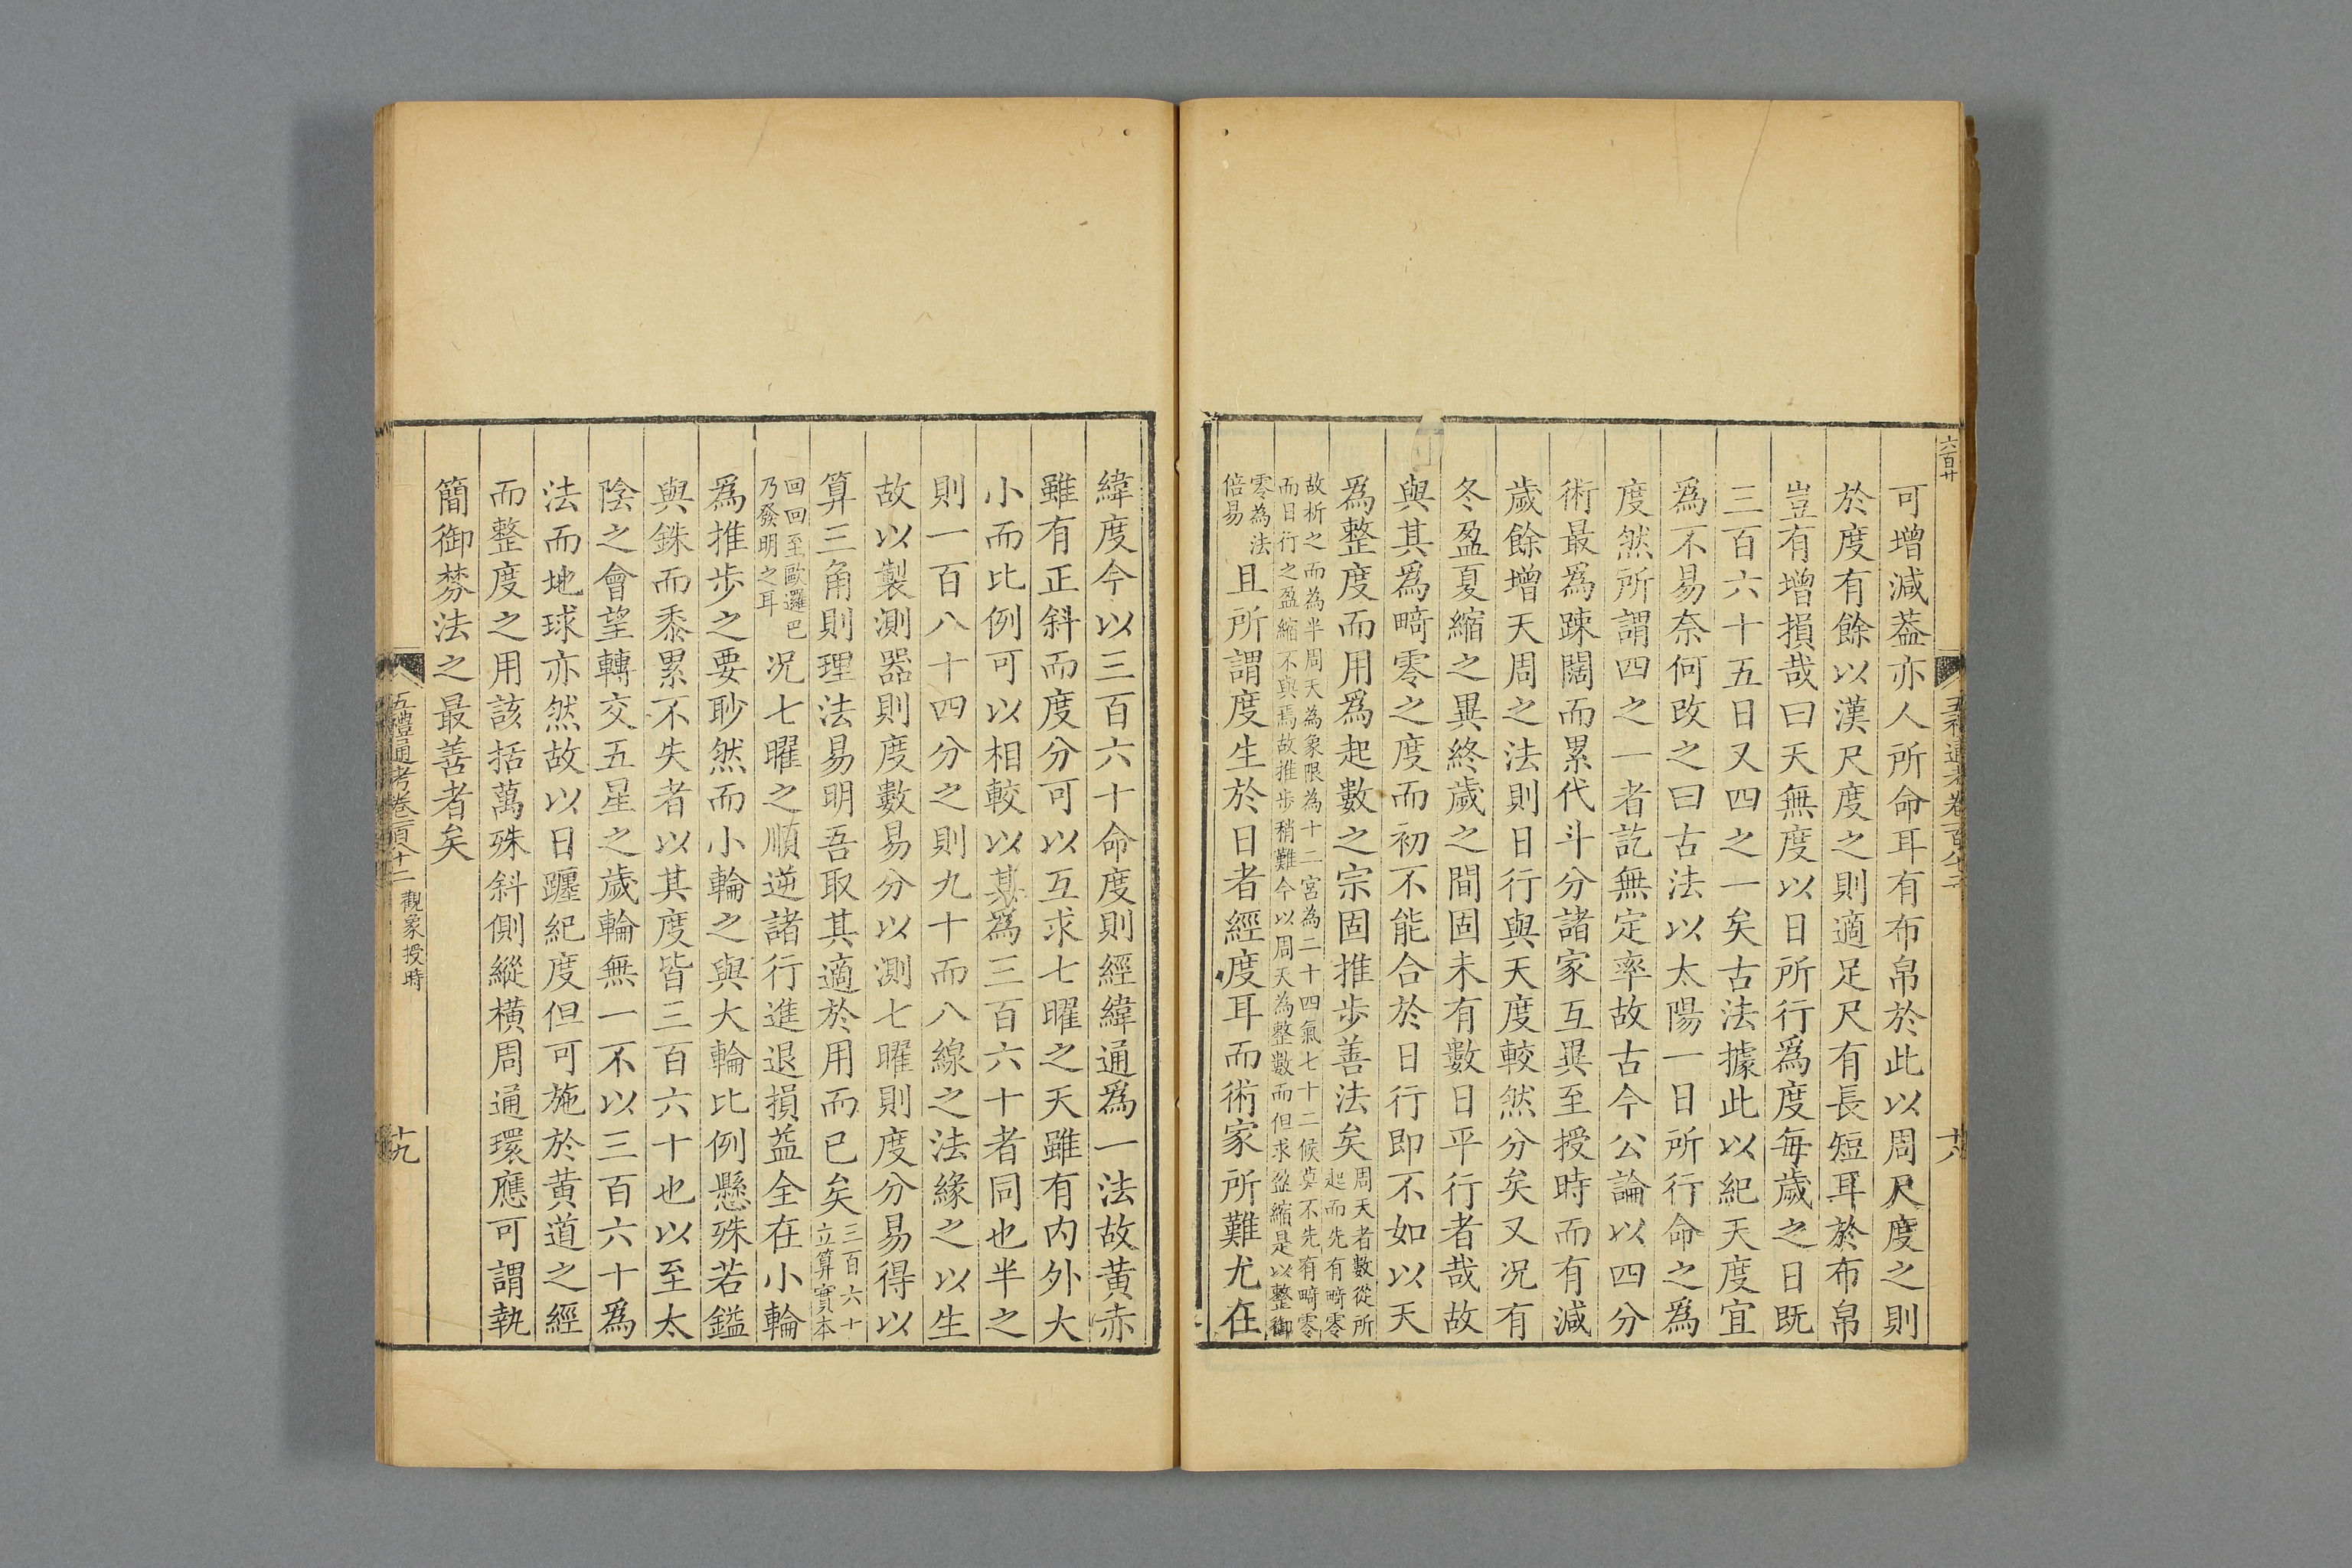 六百廿
五禮通考卷一百八十二
十八
可增減葢亦人所命耳有布帛於此以周尺度之則
於度有餘以漢尺度之則適足尺有長短耳於布帛
豈有增損哉曰天無度以日所行爲度每歲之日既
三百六十五日又四之一矣古法據此以紀天度宜
爲不易奈何改之曰古法以太陽一日所行命之爲
度然所謂四之一者訖無定率故古今公論以四分
術最爲踈闊而累代斗分諸家互異至授時而有減
歲餘增天周之法則日行與天度較然分矣又况有
冬盈夏縮之異終歲之間固未有數日平行者哉故
與其爲畸零之度而初不能合於日行即不如以天
爲整度而用爲起數之宗固推歩善法矣周天者數從所
起而先有畸零
故析之而為半周天為象限為十二宮為二十四氣七十二候莫不先有畸零
而日行之盈縮不與焉故推歩稍難今以周天為整數而但求盈縮是以整御
零為法
倍易且所謂度生於日者經度耳而術家所難尤在
緯度今以三百六十命度則經緯通爲一法故黄赤
雖有正斜而度分可以互求七曜之天雖有内外大
小而比例可以相較以其爲三百六十者同也半之
則一百八十四分之則九十而八線之法緣之以生
故以製測器則度數易分以測七曜則度分易得以
算三角則理法易明吾取其適於用而已矣三百六十
立算實本
回回至歐邏巴
乃發明之耳况七曜之順逆諸行進退損益全在小輪
爲推歩之要眇然而小輪之與大輪比例懸殊若鎰
與銖而黍累不失者以其度皆三百六十也以至太
陰之會望轉交五星之歲輪無一不以三百六十爲
法而地球亦然故以日躔紀度但可施於黄道之經
而整度之用該括萬殊斜側縱横周通環應可謂執
簡御棼法之最善者矣
五禮通考卷一百八十二
觀象授時
十九